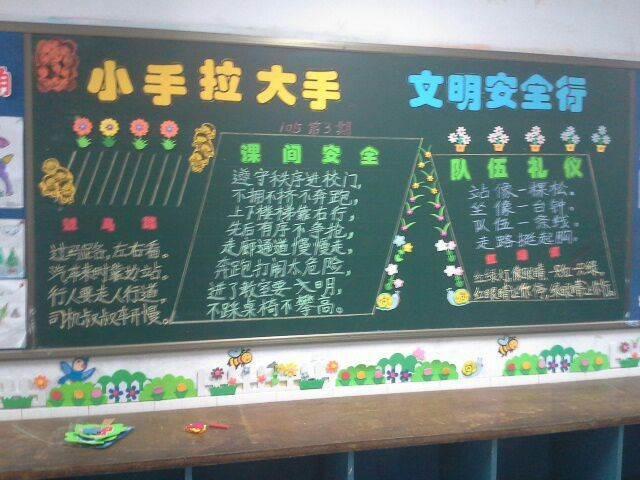 小手拉大手
文明安全行
10月第3期
课间安全
遵守秩序进校门,
不拥不挤不奔跑,
上下楼梯靠右行,
先后有序不争抢,
走廊通道慢慢走,
奔跑打闹太危险,
进了教室要文明,
不踩桌椅不攀高。
过马路
过马路,左右看。
汽车来时靠边站。
行人要走人行道,
司机叔叔车开慢。
队伍礼仪
站像一棵松。
坐像一台钟。
队伍一条线。
走路挺起胸。
红绿灯
红绿灯像眼睛
红眼睛让你停,绿眼睛